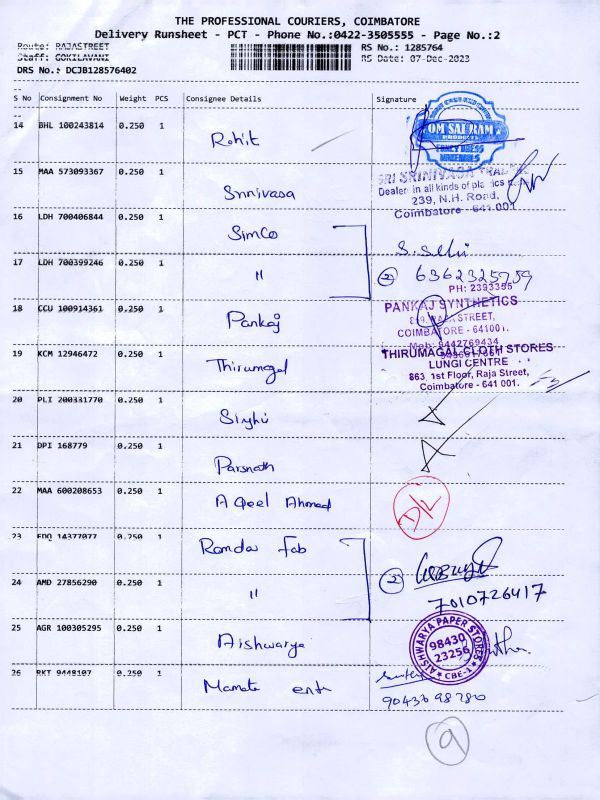 THE PROFESSIONAL COURIERS, COIMBATORE
Delivery Runsheet - PCT - Phone No.:0422-3505555 - Page No.:2
Route: RAJASTREET RS No.: 1285764
Staff: GOKILAVANI RS Date: 07-Dec-2023
DRS No.: DCJB128576402
S No Consignment No Weight PCS Consignee Details Signature
14 BHL 100243814 0.250 1 Rohit
OM SAI RAM
PRODUCTS
FANCY DRESS
MATERIALS
15 MAA 573093367 0.250 1 Srinivasa
SRI SRINIVASA
Dealer in all kinds of
239, N.H. Road,
Coimbatore - 641 001
16 LDH 700406844 0.250 1 SimCo
17 LDH 700399246 0.250 1 "
2
PH: 2393395
18 CCU 100914361 0.250 1 Pankaj
PANKAJ SYNTHETICS
STREET,
COIMBATORE - 641001.
Mob: 9442769434
19 KCM 12946472 0.250 1 Thirumagal
THIRUMAGAL CLOTH STORES
LUNGI CENTRE
863, 1st Floor, Raja Street,
Coimbatore - 641 001.
20 PLI 200331770 0.250 1
21 DPI 168779 0.250 1 Parsnath
22 MAA 600208653 0.250 1 A Qeel Ahmed D/L
23 EDQ 14377077 0.250 1 Ramdev Fab
24 AMD 27856290 0.250 1 " 2
7010726417
25 AGR 100305295 0.250 1 Aishwarya
AISHWARYA PAPER STORES
98430
23256
CBE-1
26 RKT 9448107 0.250 1 Mamata ent
9